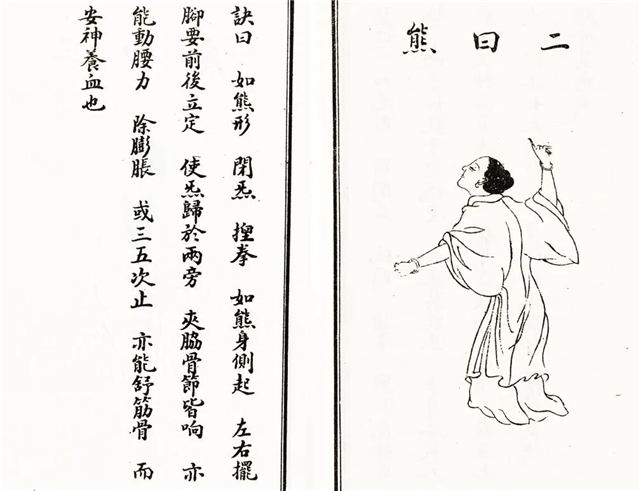 二曰熊
訣曰 如熊形 閉炁 揑拳 如熊身側起 左右擺
腳要前後立定 使炁歸於兩旁 夾脇骨節皆响 亦
能動腰力 除膨脹 或三五次止 亦能舒筋骨 而
安神養血也